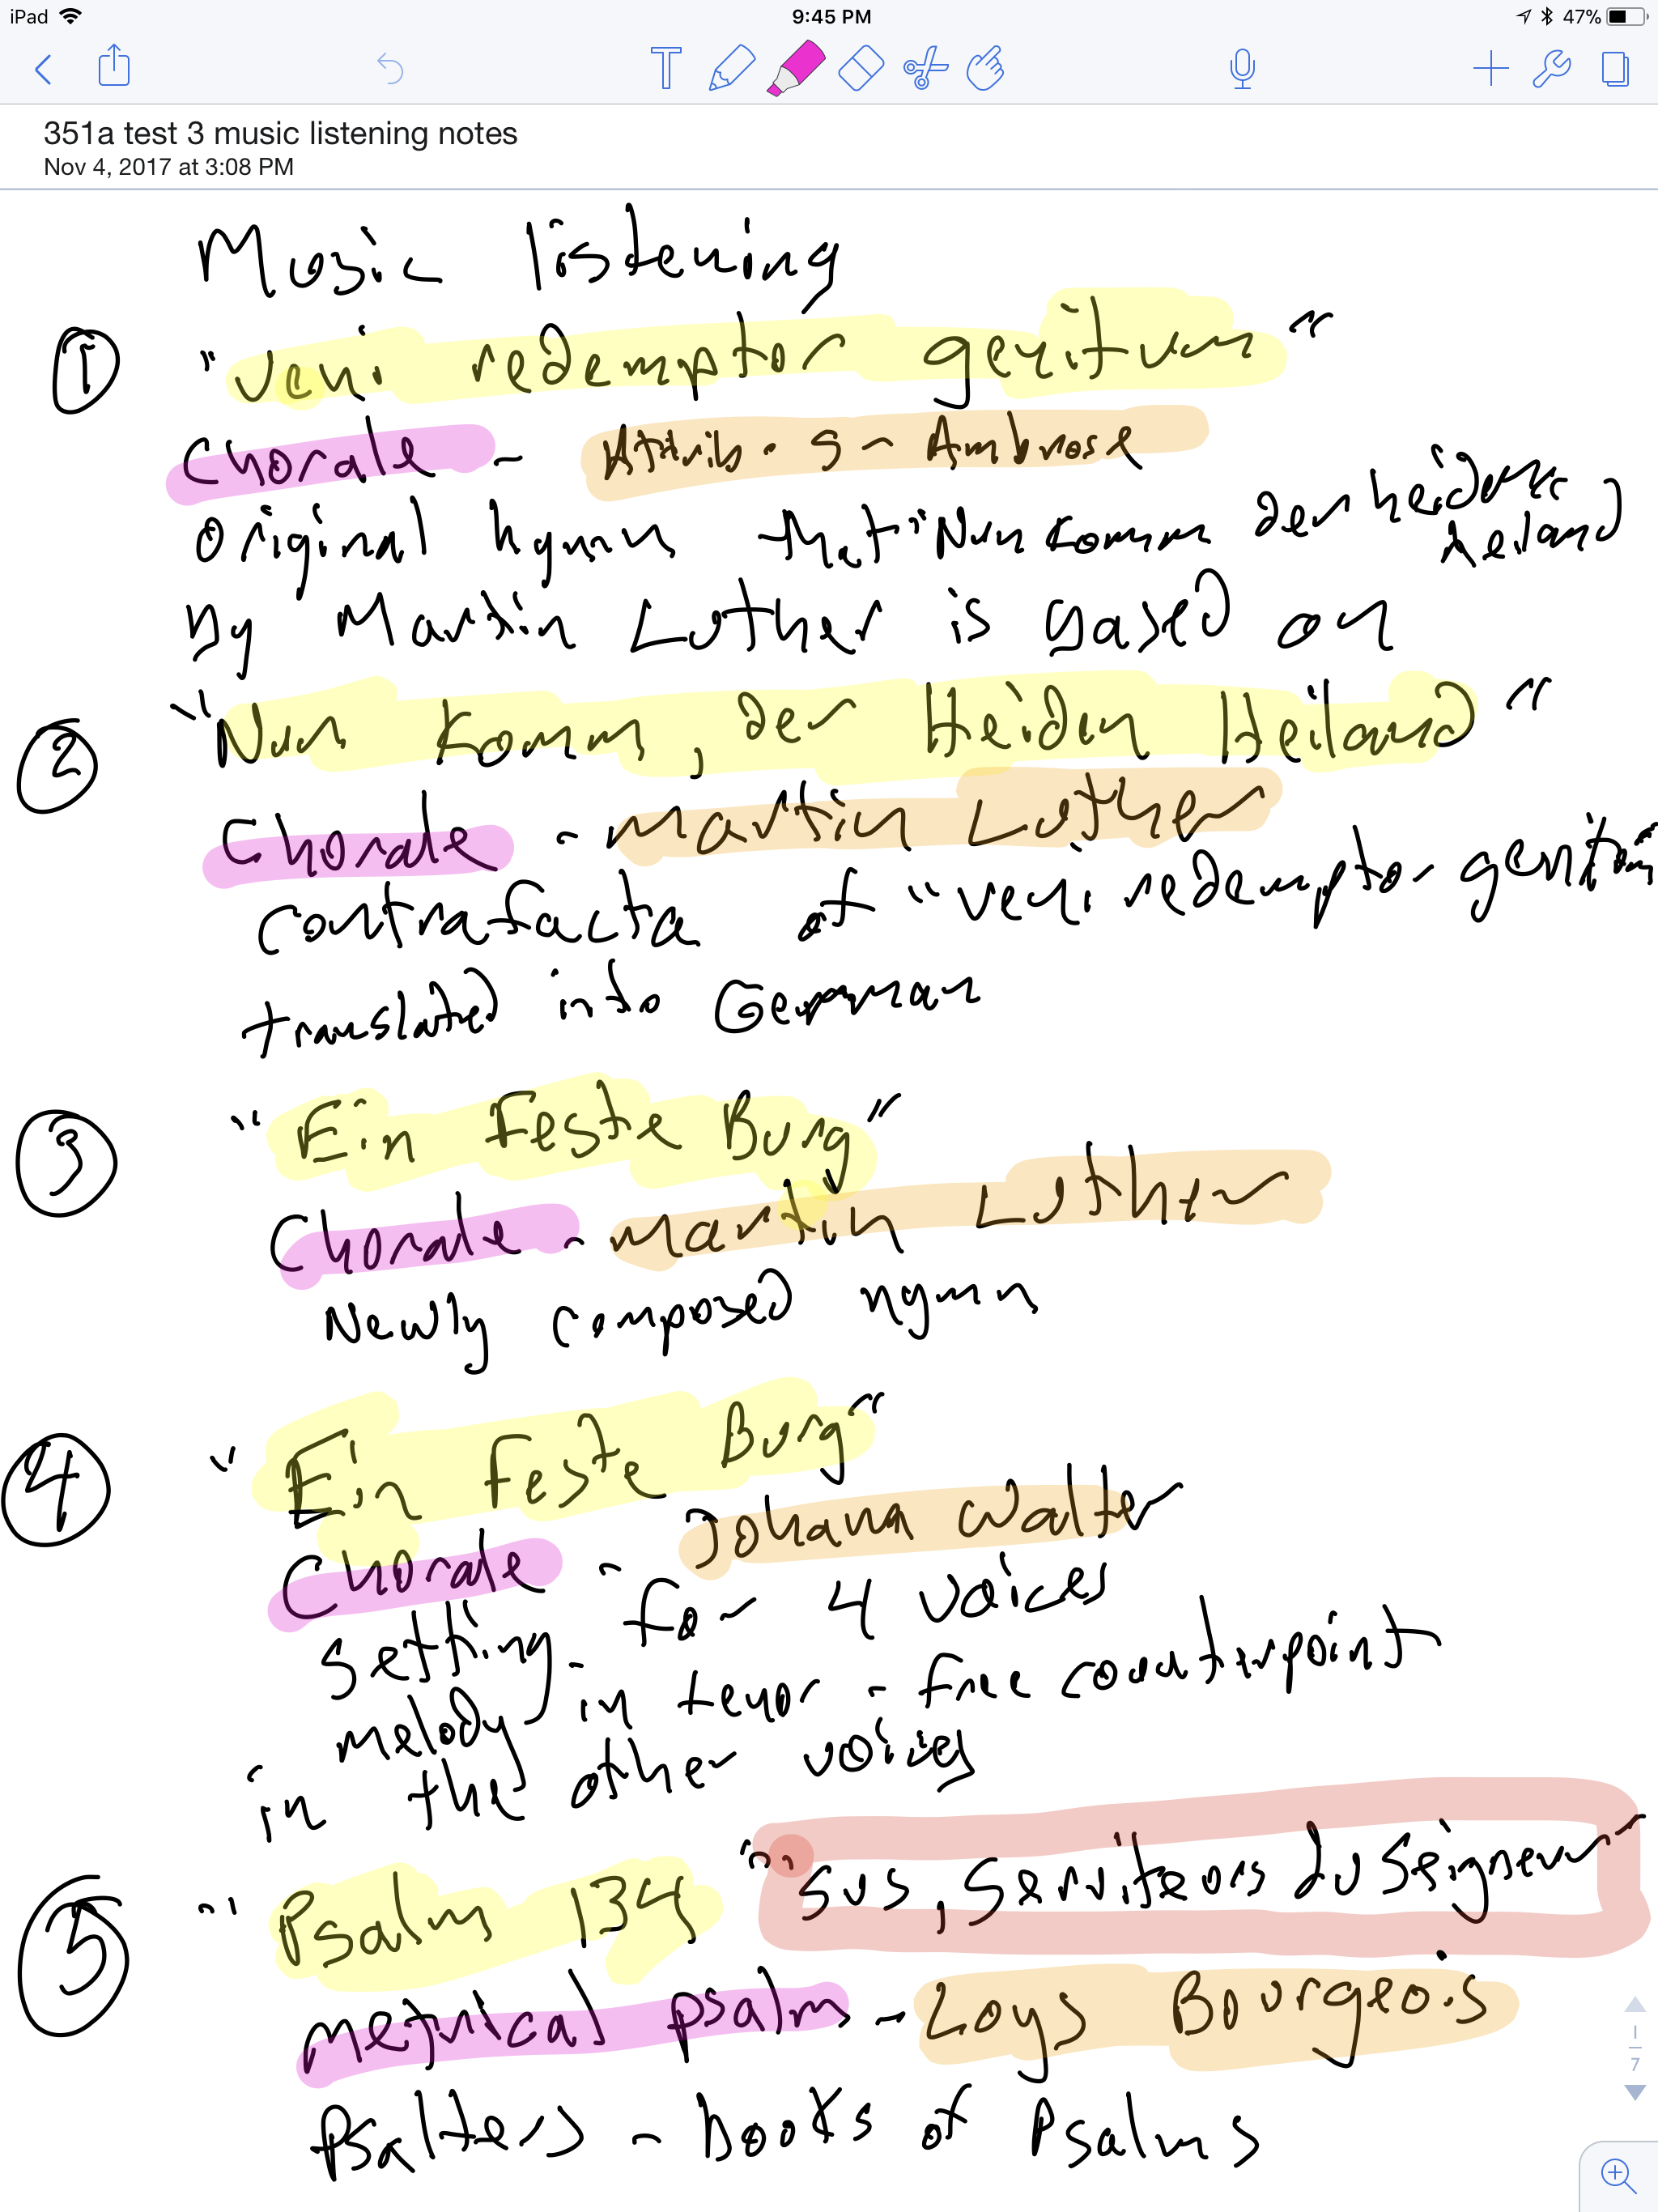 iPad 9:45 PM 47%
T
351a test 3 music listening notes
Nov 4, 2017 at 3:08 PM
Music listening
① "veni redemptor genitum"
Chorale - Attrib. S - Ambrose
original hymn that "Nun Komm der heiden heiland
by Martin Luther is based on
② "Nun Komm, der Heiden Heiland"
Chorale - Martin Luther
contrafacta of "veni redemptor genitum
translated into German
③ "Ein Feste Burg"
Chorale - Martin Luther
Newly composed hymn
④ "Ein Feste Burg"
Chorale - Johann Walter
setting - for 4 voices
melody in tenor - free counterpoint
in the other voices
⑤ "Psalm 134 "Sus, Serviteurs du Seigneur"
metrical psalm - Loys Bourgeois
Psalters - books of Psalms
1
7